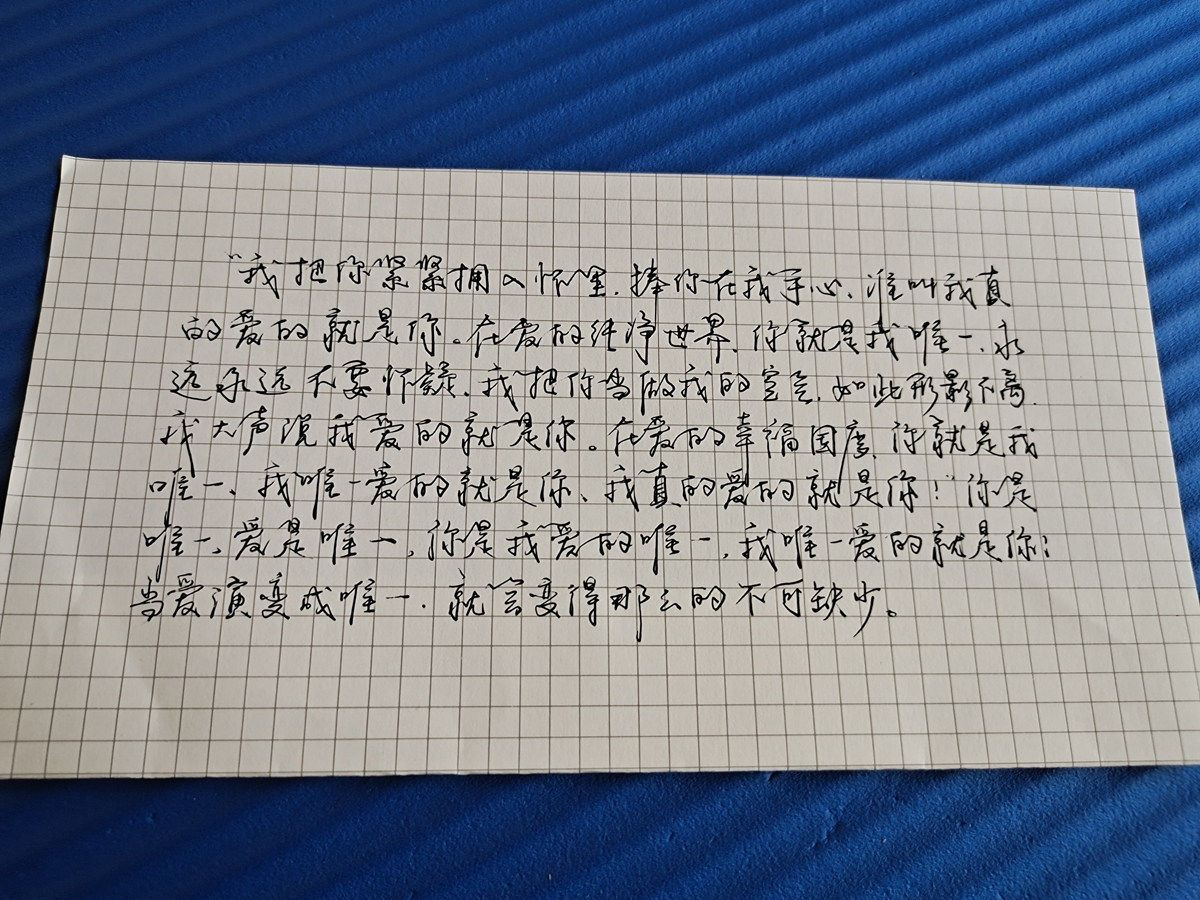 “我把你紧紧拥入怀里，捧你在我手心，谁叫我真
的爱的就是你。在爱的纯净世界，你就是我唯一，永
远永远不要怀疑，我把你当做我的空气，如此形影不离，
我大声说我爱的就是你。在爱的幸福国度，你就是我
唯一，我唯一爱的就是你，我真的爱的就是你！”你是
唯一，爱是唯一，你是我爱的唯一，我唯一爱的就是你；
当爱演变成唯一，就会变得那么的不可缺少。